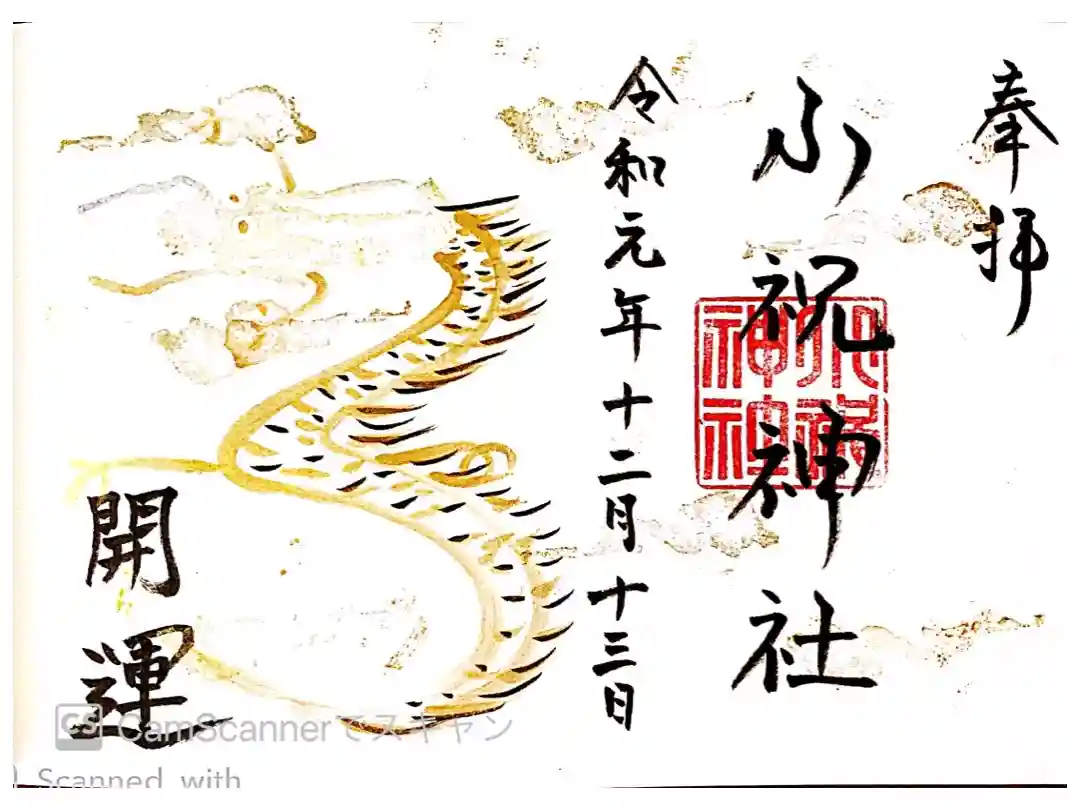 奉拝
小祝神社
令和元年十二月十三日
開運
CS CamScannerでスキャン
Scanned with